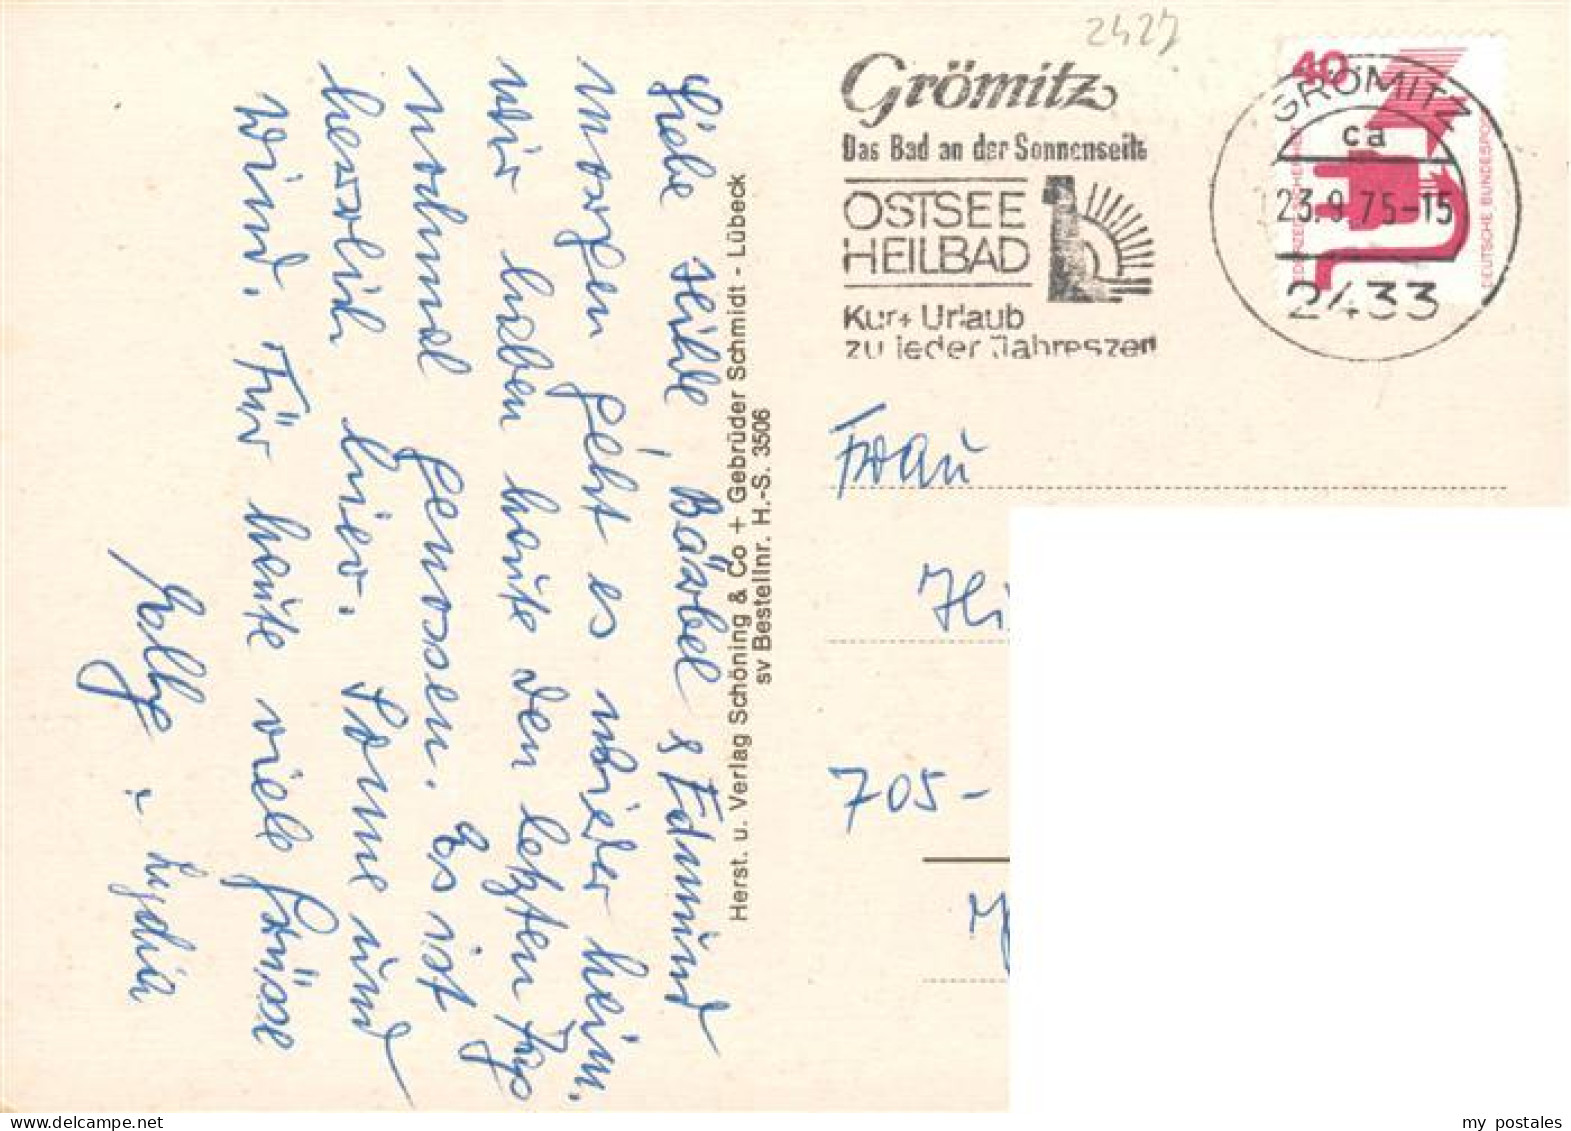 2427
Grömitz
Das Bad an der Sonnenseite
OSTSEE
HEILBAD
Kur + Urlaub
zu jeder Jahreszeit
40
JEDERZEIT SICHERHEIT
DEUTSCHE BUNDESPOST
GRÖMITZ
ca
23.9.75-15
2433
Liebe Bärbel & Edmund
morgen geht es wieder heim.
Wir haben heute den letzten Tag
nochmal genossen. Es ist
herrlich hier. Sonne und
Wind. Für heute viele Grüsse
Lydia
Herst. u. Verlag Schöning & Co + Gebrüder Schmidt - Lübeck
sv Bestellnr. H.-S. 3506
Frau
Hi
705-
my postales